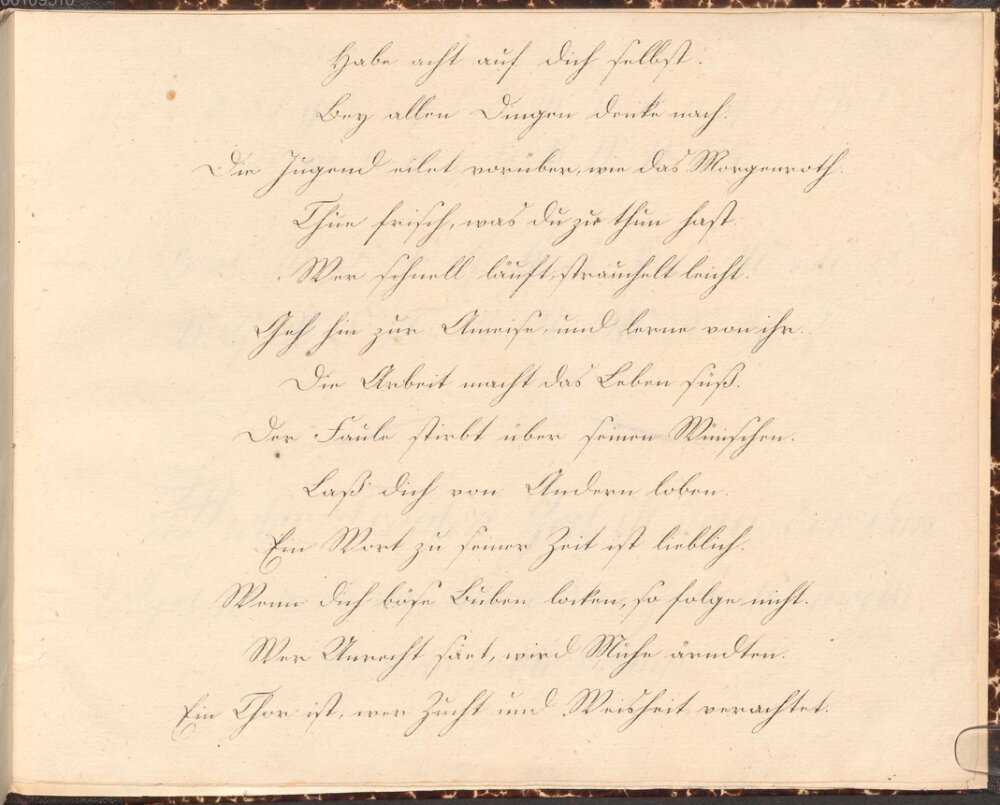 00109510
Habe acht auf dich selbst.
Bey allen Dingen denke nach.
Die Jugend eilet vorüber, wie das Morgenroth.
Thue frisch, was du zu thun hast.
Wer schnell läuft, strauchelt leicht.
Geh hin zur Ameise, und lerne von ihr.
Die Arbeit macht das Leben süß.
Der Faule stirbt über seinen Wünschen.
Laß dich von Andern loben.
Ein Wort zu seiner Zeit ist lieblich.
Wenn dich böse Buben locken, so folge nicht.
Wer Unrecht säet, wird Mühe ärndten.
Ein Thor ist, wer Zucht und Weisheit verachtet.